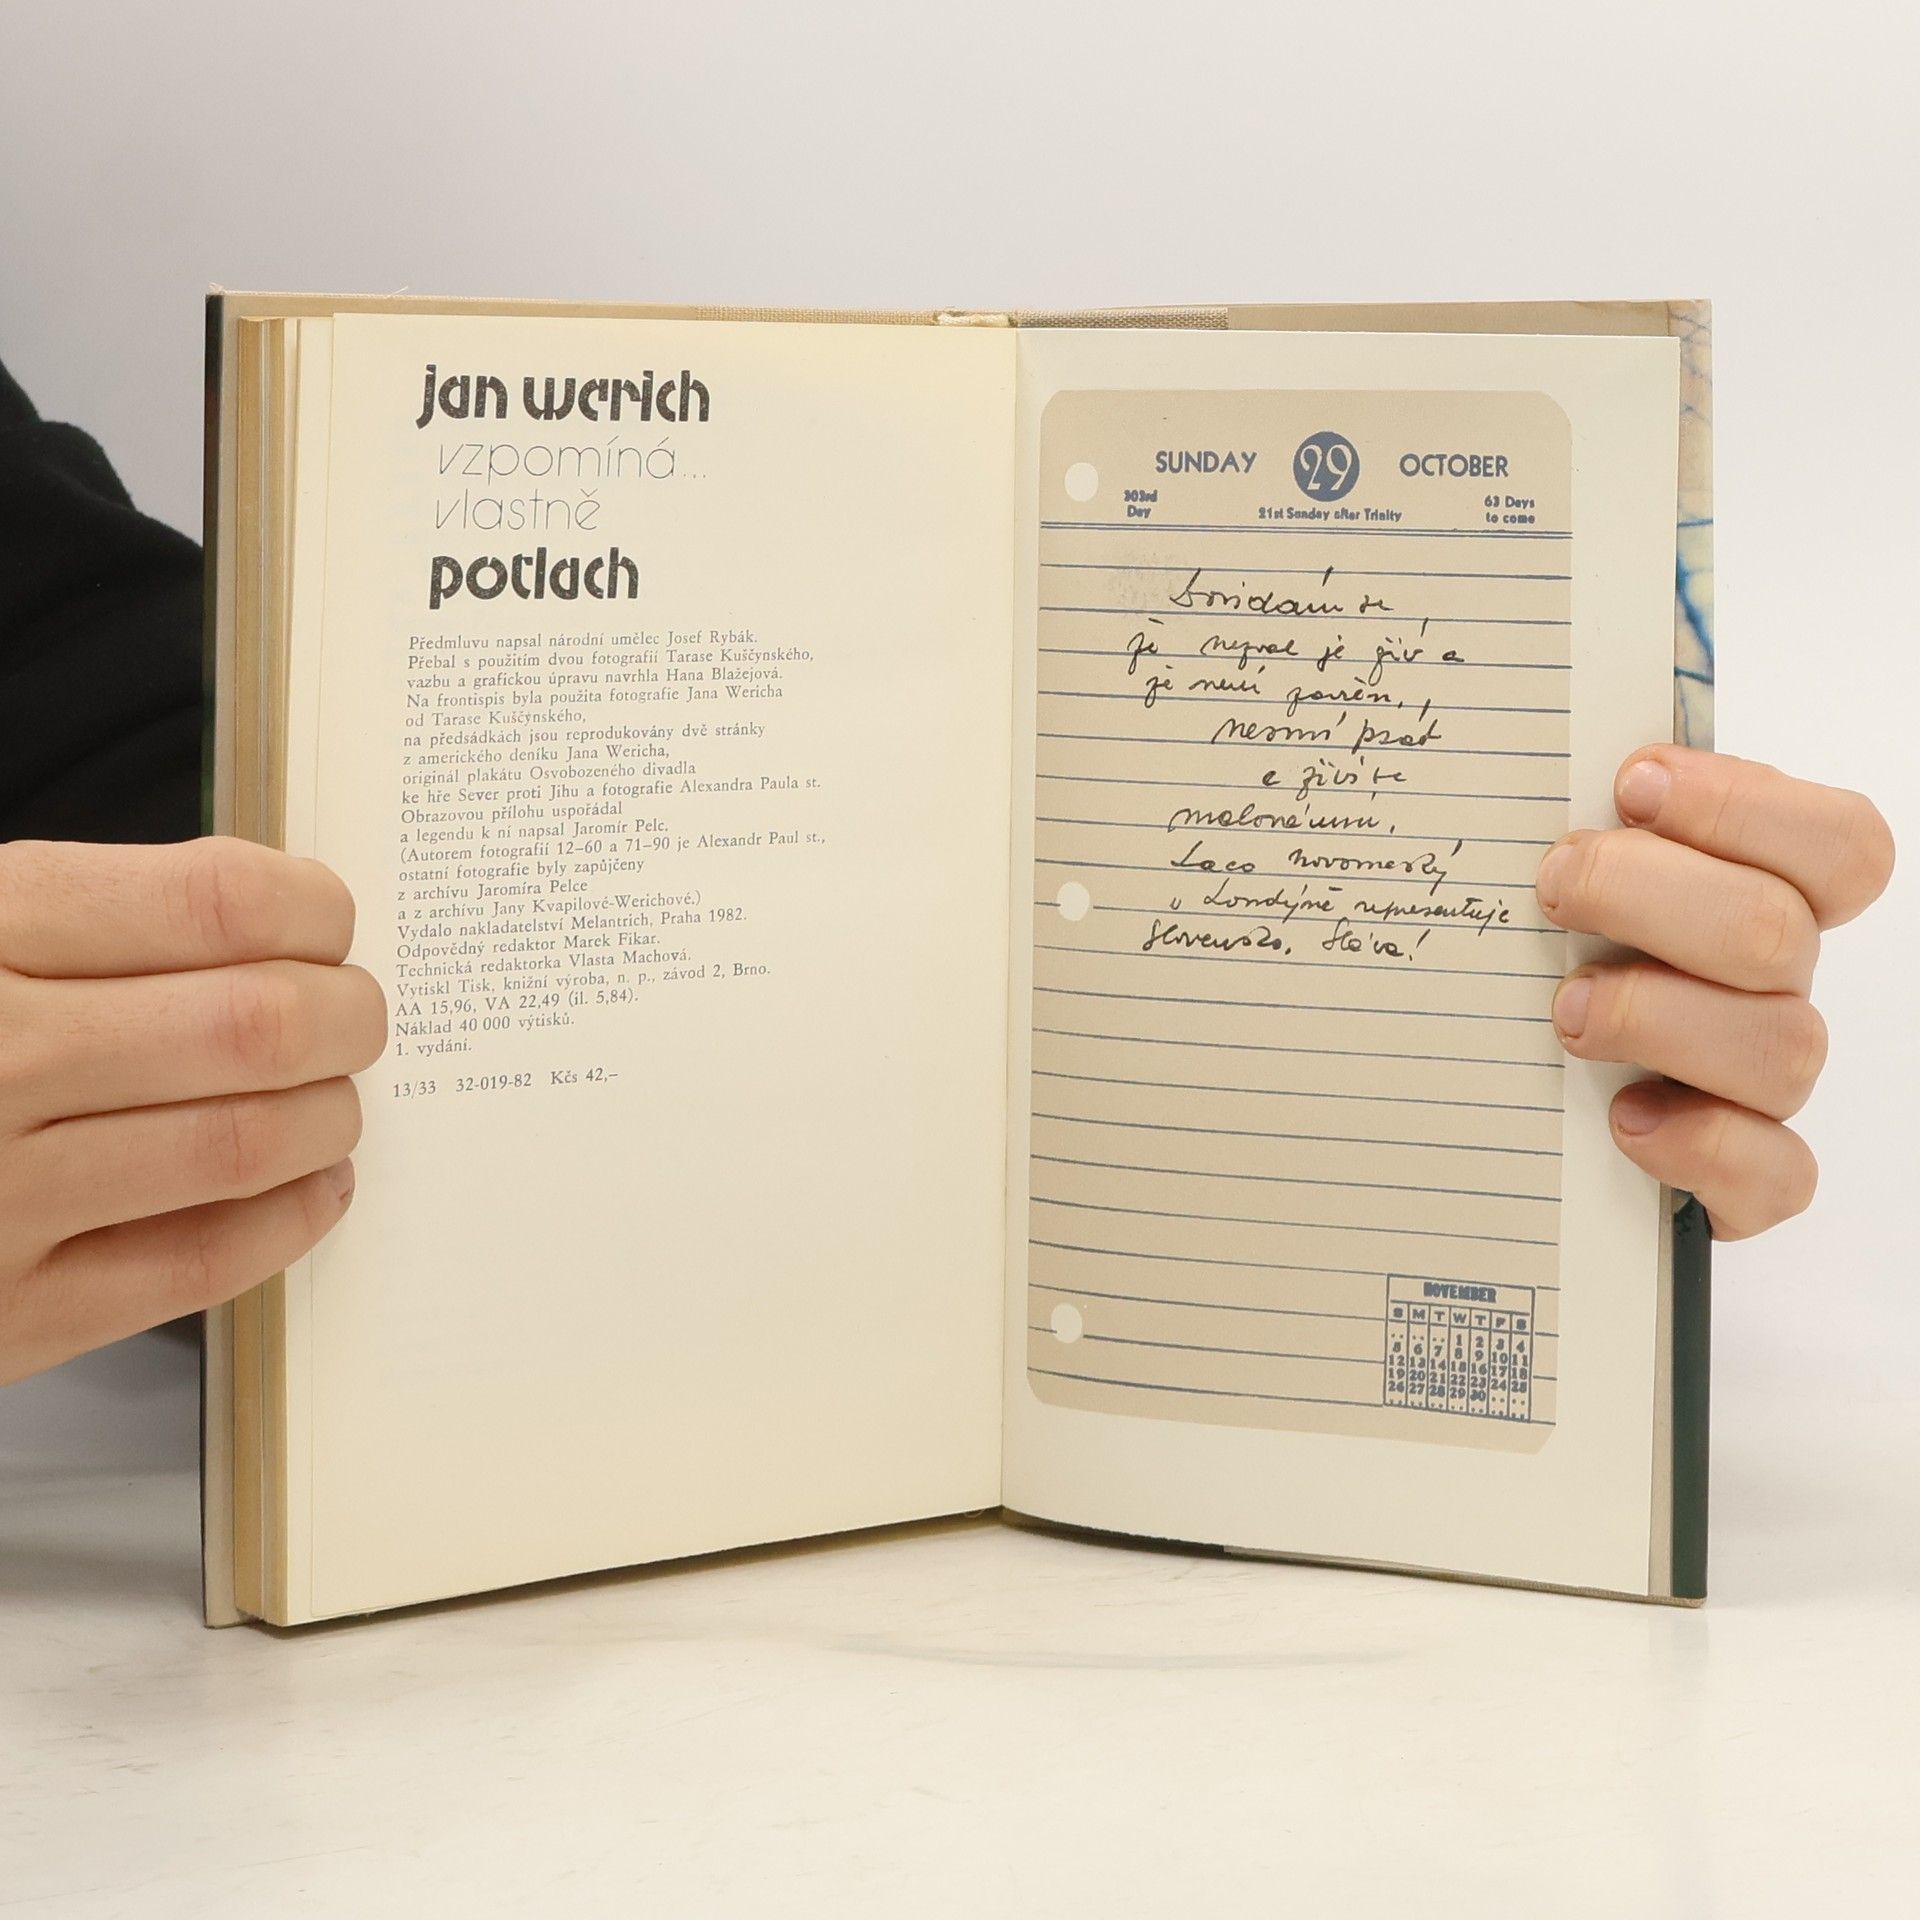 jan werich
vzpomíná...
vlastně
potlach
Předmluvu napsal národní umělec Josef Rybák.
Přebal s použitím dvou fotografií Tarase Kuščynského,
vazbu a grafickou úpravu navrhla Hana Blažejová.
Na frontispis byla použita fotografie Jana Wericha
od Tarase Kuščynského,
na předsádkách jsou reprodukovány dvě stránky
z amerického deníku Jana Wericha,
originál plakátu Osvobozeného divadla
ke hře Sever proti Jihu a fotografie Alexandra Paula st.
Obrazovou přílohu uspořádal
a legendu k ní napsal Jaromír Pelc.
(Autorem fotografií 12–60 a 71–90 je Alexandr Paul st.,
ostatní fotografie byly zapůjčeny
z archívu Jaromíra Pelce
a z archívu Jany Kvapilové-Werichové.)
Vydalo nakladatelství Melantrich, Praha 1982.
Odpovědný redaktor Marek Fikar.
Technická redaktorka Vlasta Machová.
Vytiskl Tisk, knižní výroba, n. p., závod 2, Brno.
AA 15,96, VA 22,49 (il. 5,84).
Náklad 40 000 výtisků.
1. vydání.
13/33 32-019-82 Kčs 42,–
SUNDAY 29 OCTOBER
303rd Day 21st Sunday after Trinity 63 Days to come
Dovídám se
že nezval je živ a
že není zavřen,
nesmí psát
a živí se
malováním.
Laco novomeský
v Londýně representuje
Slovensko. Sláva!
NOVEMBER
S M T W T F S
.. .. .. 1 2 3 4
5 6 7 8 9 10 11
12 13 14 15 16 17 18
19 20 21 22 23 24 25
26 27 28 29 30 .. ..